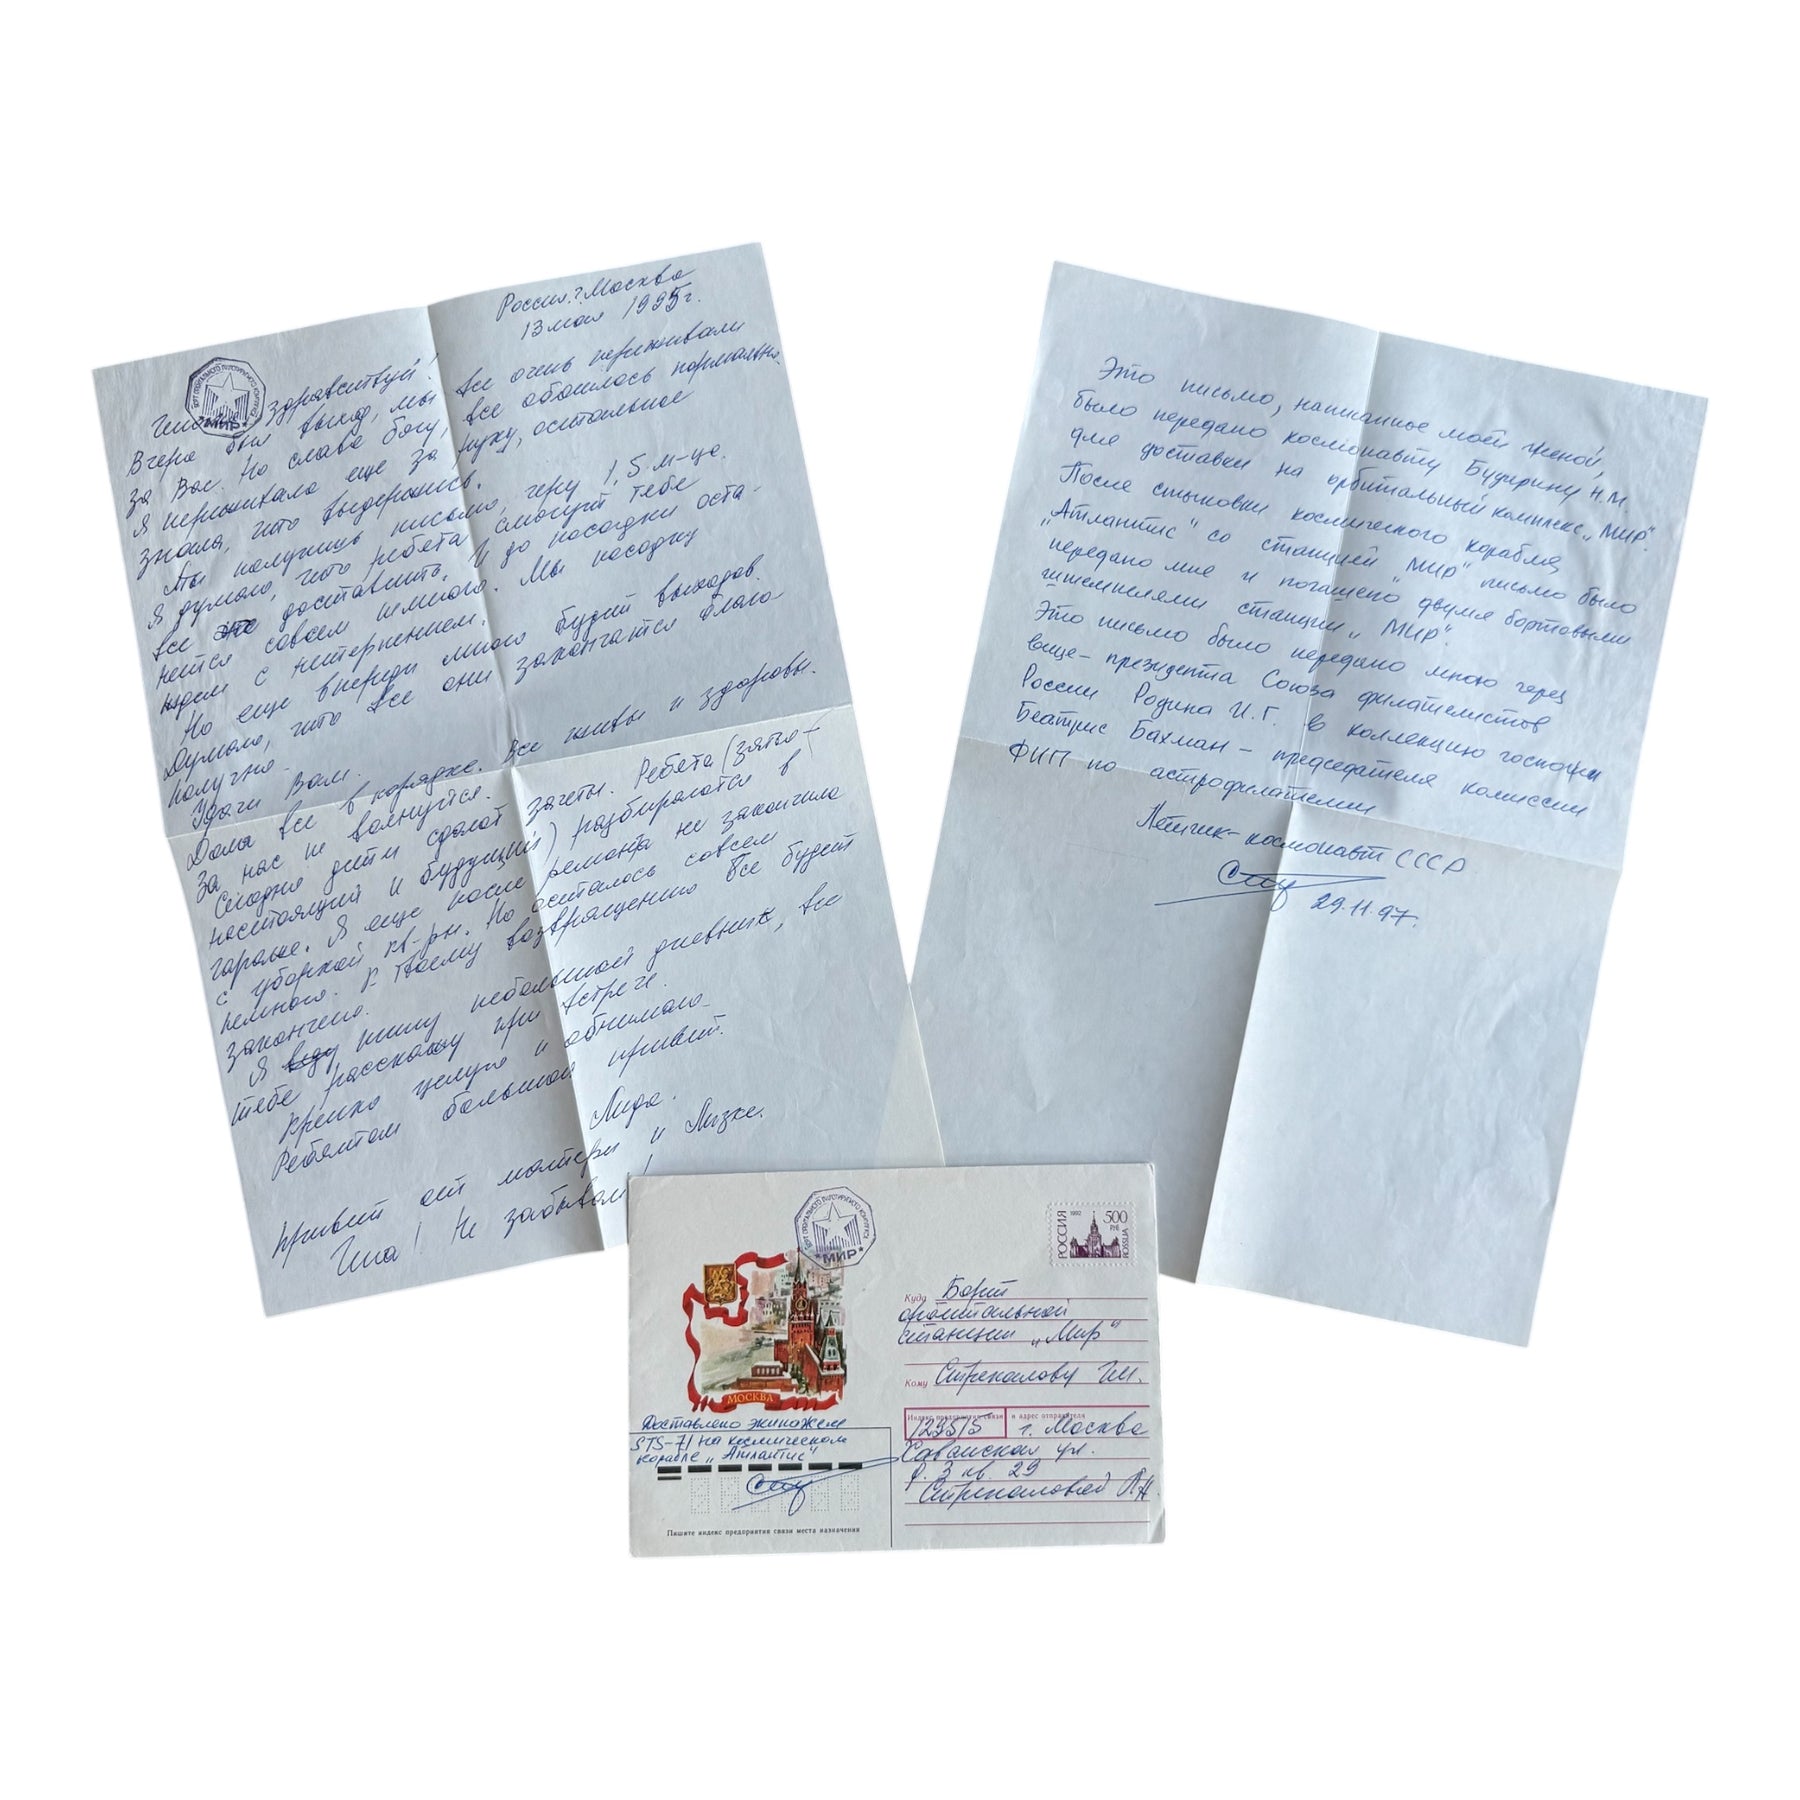 Россия. г. Москва
13 мая 1995 г.
здравствуй!
Вчера был выход, мы все очень переживали
за Вас. Но слава богу, все обошлось нормально.
Я переживала еще за руку, остальное
знала, что выдержись.
Ты получишь письмо, через 1,5 м-ца.
Я думаю, что ребята смогут тебе
все доставить. И до посадки оста-
нется совсем немного. Мы посадку
ждем с нетерпением.
Но еще впереди много будет выходов.
Думаю, что все они закончатся благо
получно.
Удачи Вам.
Дома все в порядке. Все живы и здоровы.
За нас не волнуйся.
Сегодня дети сдают зачеты. Ребята (зятья
настоящий и будущий) разбираются в
гараже. Я еще после ремонта не закончила
с уборкой кв-ры. Но осталось совсем
немного. К твоему возвращению все будет
закончено.
Я веду пишу небольшой дневник, все
тебе расскажу при встрече.
Крепко целую и обнимаю.
Ребятам большой привет.
Лида.
Привет от матери и Лизке.
Гена! Не забывай!
БОРТ ОРБИТАЛЬНОГО ПИЛОТИРУЕМОГО КОМПЛЕКСА
МИР
Это письмо, написанное моей женой,
было передано космонавту Бударину Н.М.
для доставки на орбитальный комплекс „МИР".
После стыковки космического корабля
„Атлантис" со станцией „МИР" письмо было
передано мне и погашено двумя бортовыми
штемпелями станции „МИР".
Это письмо было передано мною через
вице-президента Союза филателистов
России Родина И.Г. в коллекцию госпожи
Беатрис Бахман - председателя комиссии
ФИП по астрофилателии
Летчик-космонавт СССР
29.11.97.
БОРТ ОРБИТАЛЬНОГО ПИЛОТИРУЕМОГО КОМПЛЕКСА
МИР
РОССИЯ 1992 500 РУБ ROSSIJA
МОСКВА
Куда Борт
орбитальной
станции „Мир"
Кому Стрекалову Г.М.
Индекс предприятия связи и адрес отправителя
129515 г. Москва
Хованская ул.
д. 3 кв. 29
Стрекаловой Л.Н.
Доставлено экипажем
STS-71 на космическом
корабле „Атлантис"
Пишите индекс предприятия связи места назначения